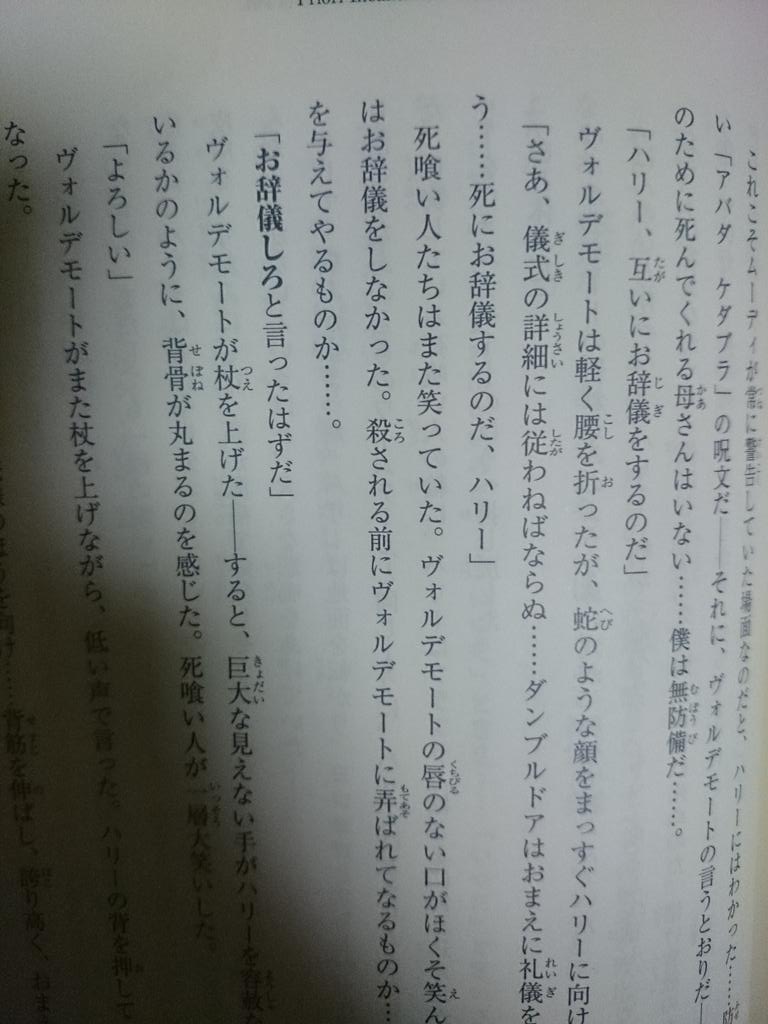 Priori Incan
これこそムーディが常に警告していた場面なのだと、ハリーにはわかった……防
い「アバダ ケダブラ」の呪文だ――それに、ヴォルデモートの言うとおりだ――
のために死んでくれる母さんはいない……僕は無防備だ……。
「ハリー、互いにお辞儀をするのだ」
ヴォルデモートは軽く腰を折ったが、蛇のような顔をまっすぐハリーに向け
「さあ、儀式の詳細には従わねばならぬ……ダンブルドアはおまえに礼儀を
う……死にお辞儀するのだ、ハリー」
死喰い人たちはまた笑っていた。ヴォルデモートの唇のない口がほくそ笑ん
はお辞儀をしなかった。殺される前にヴォルデモートに弄ばれてなるものか…
を与えてやるものか……。
「お辞儀しろと言ったはずだ」
ヴォルデモートが杖を上げた――すると、巨大な見えない手がハリーを容赦な
いるかのように、背骨が丸まるのを感じた。死喰い人が一層大笑いした。
「よろしい」
ヴォルデモートがまた杖を上げながら、低い声で言った。ハリーの背を押して
なった。
のほうを向け……背筋を伸ばし、誇り高く、おま